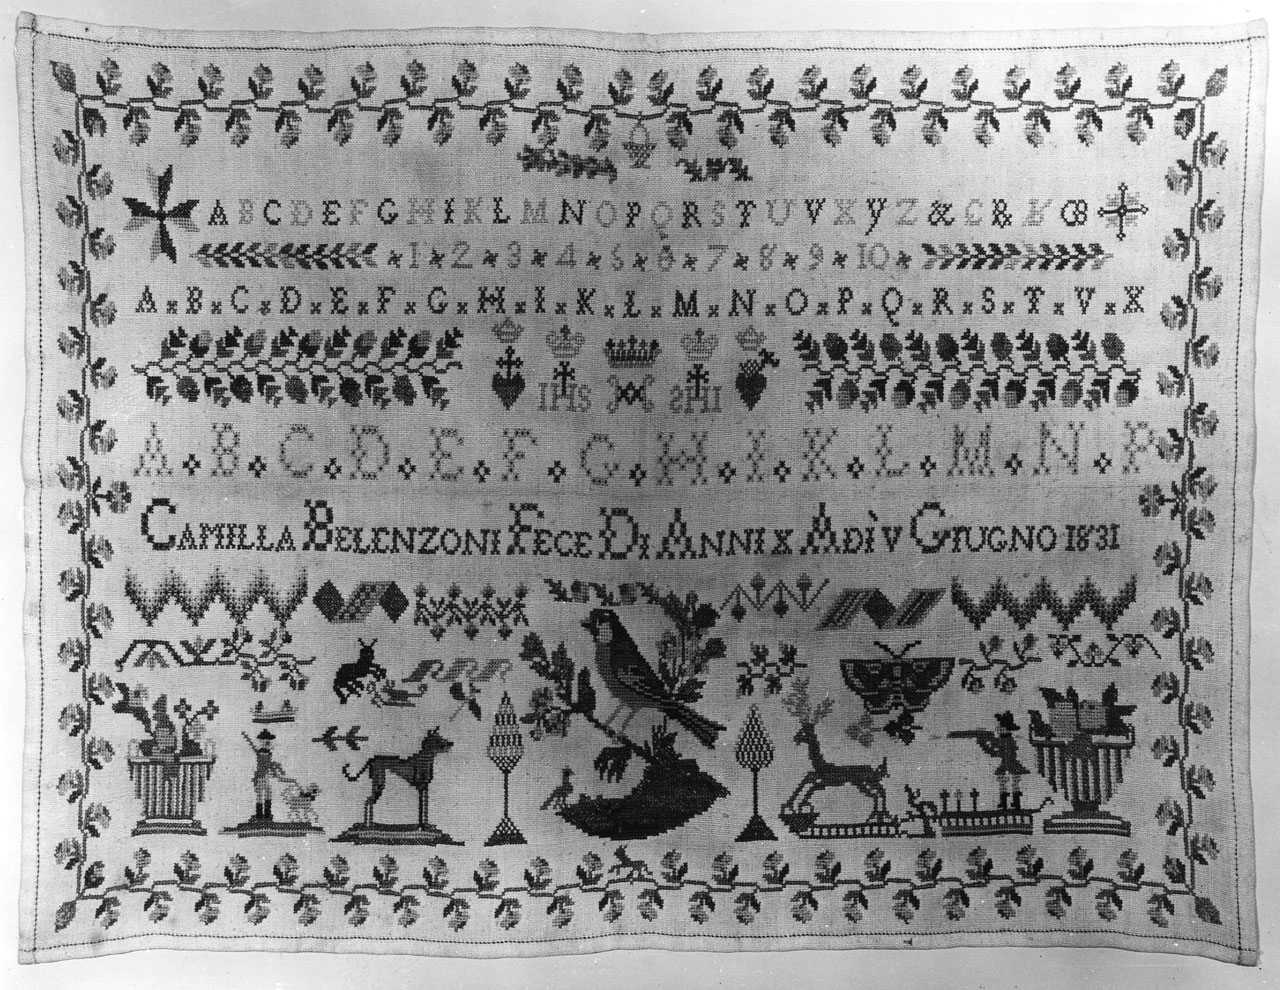 A B C D E F G H I K L M N O P Q R S T U V X Y Z & C R &
1 * 2 * 3 * 4 * 5 * 6 * 7 * 8 * 9 * 10
A × B × C × D × E × F × G × H × I × K × L × M × N × O × P × Q × R × S × T × V × X
IHS IHS
A B C D E F G H I K L M N P
CAMILLA BELENZONI FECE DI ANNI X ADÌ V GIUGNO 1831